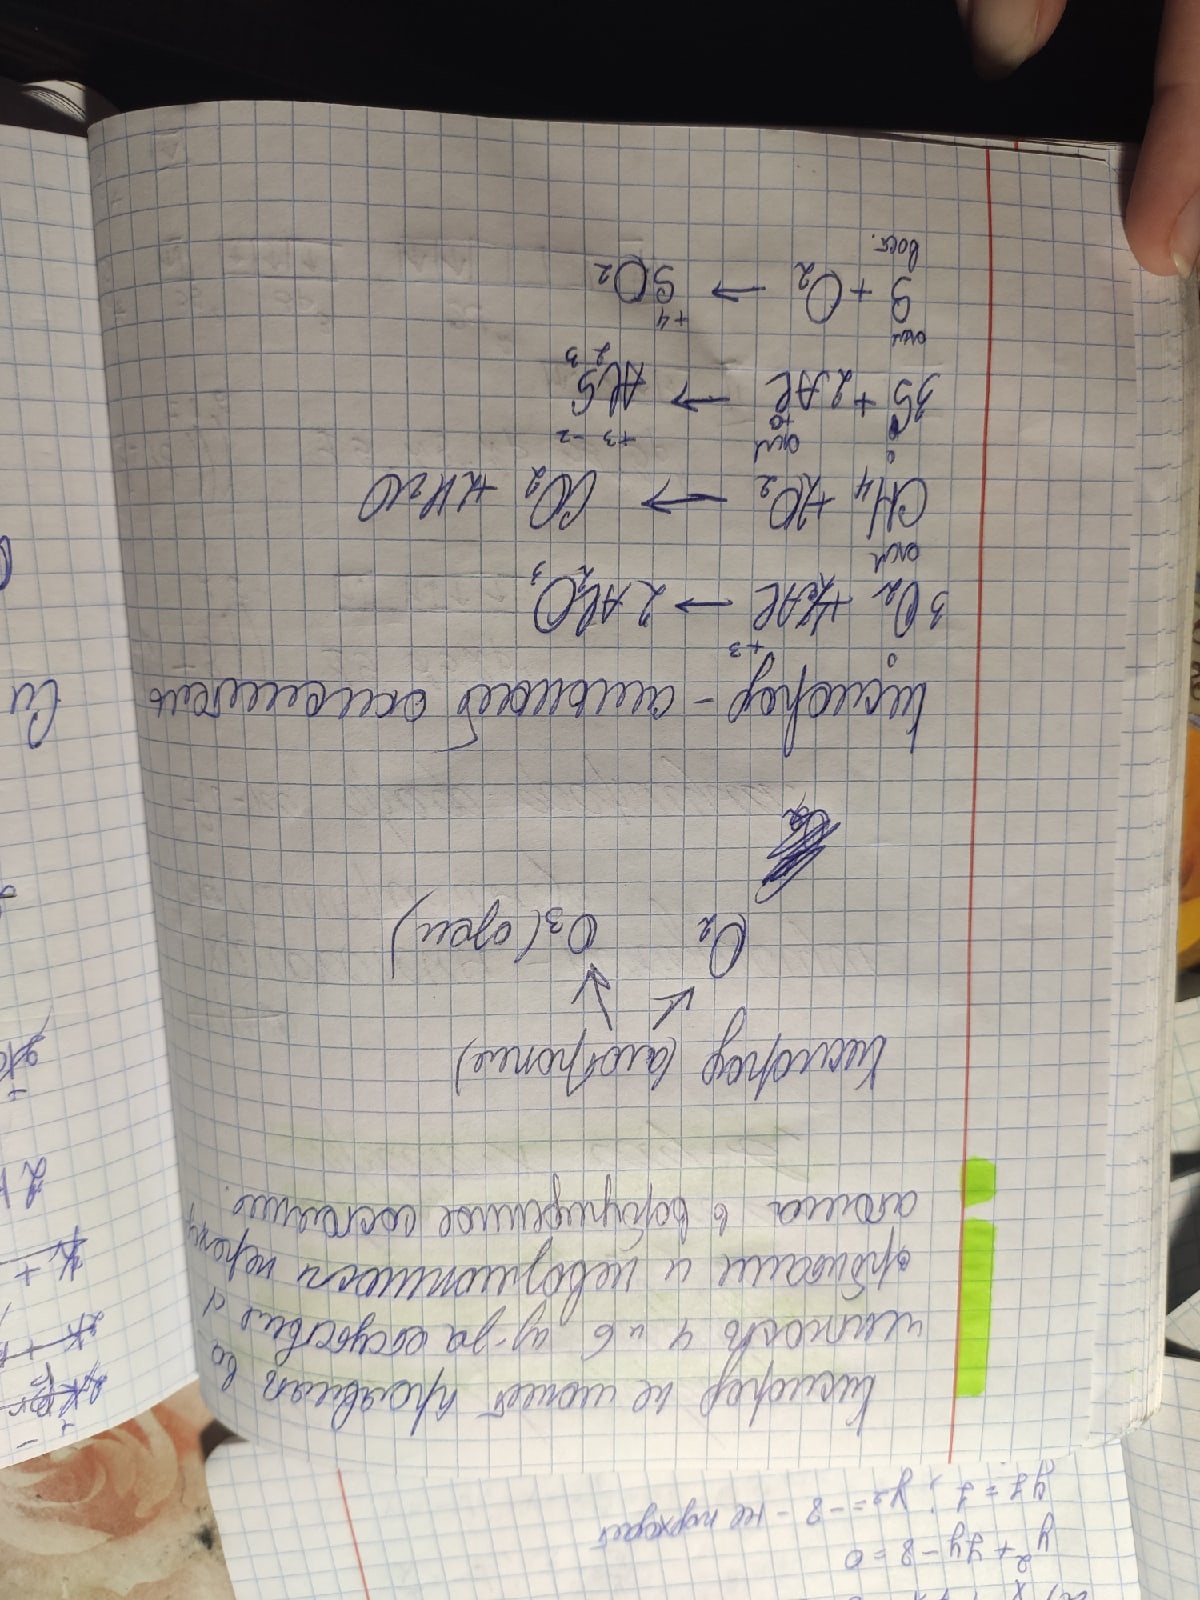 y² + 7y - 8 = 0
y1 = 1; y2 = -8 - не подходит
Кислород не может проявлять ва-
лентность 4 и 6 из-за отсутствия d
орбитали и невозможности
атома в возбужденное состояние.
Кислород (алотропия)
O2 O3 (озон)
Кислород - сильный окислитель
0 +3
3O2 + 4Al → 2Al2O3
окл
CH4 + 2O2 → CO2 + 2H2O
0 окл
0 +0 +3 -2
3S + 2Al → Al2S3
окл
+4
S + O2 → SO2
вост.
K +